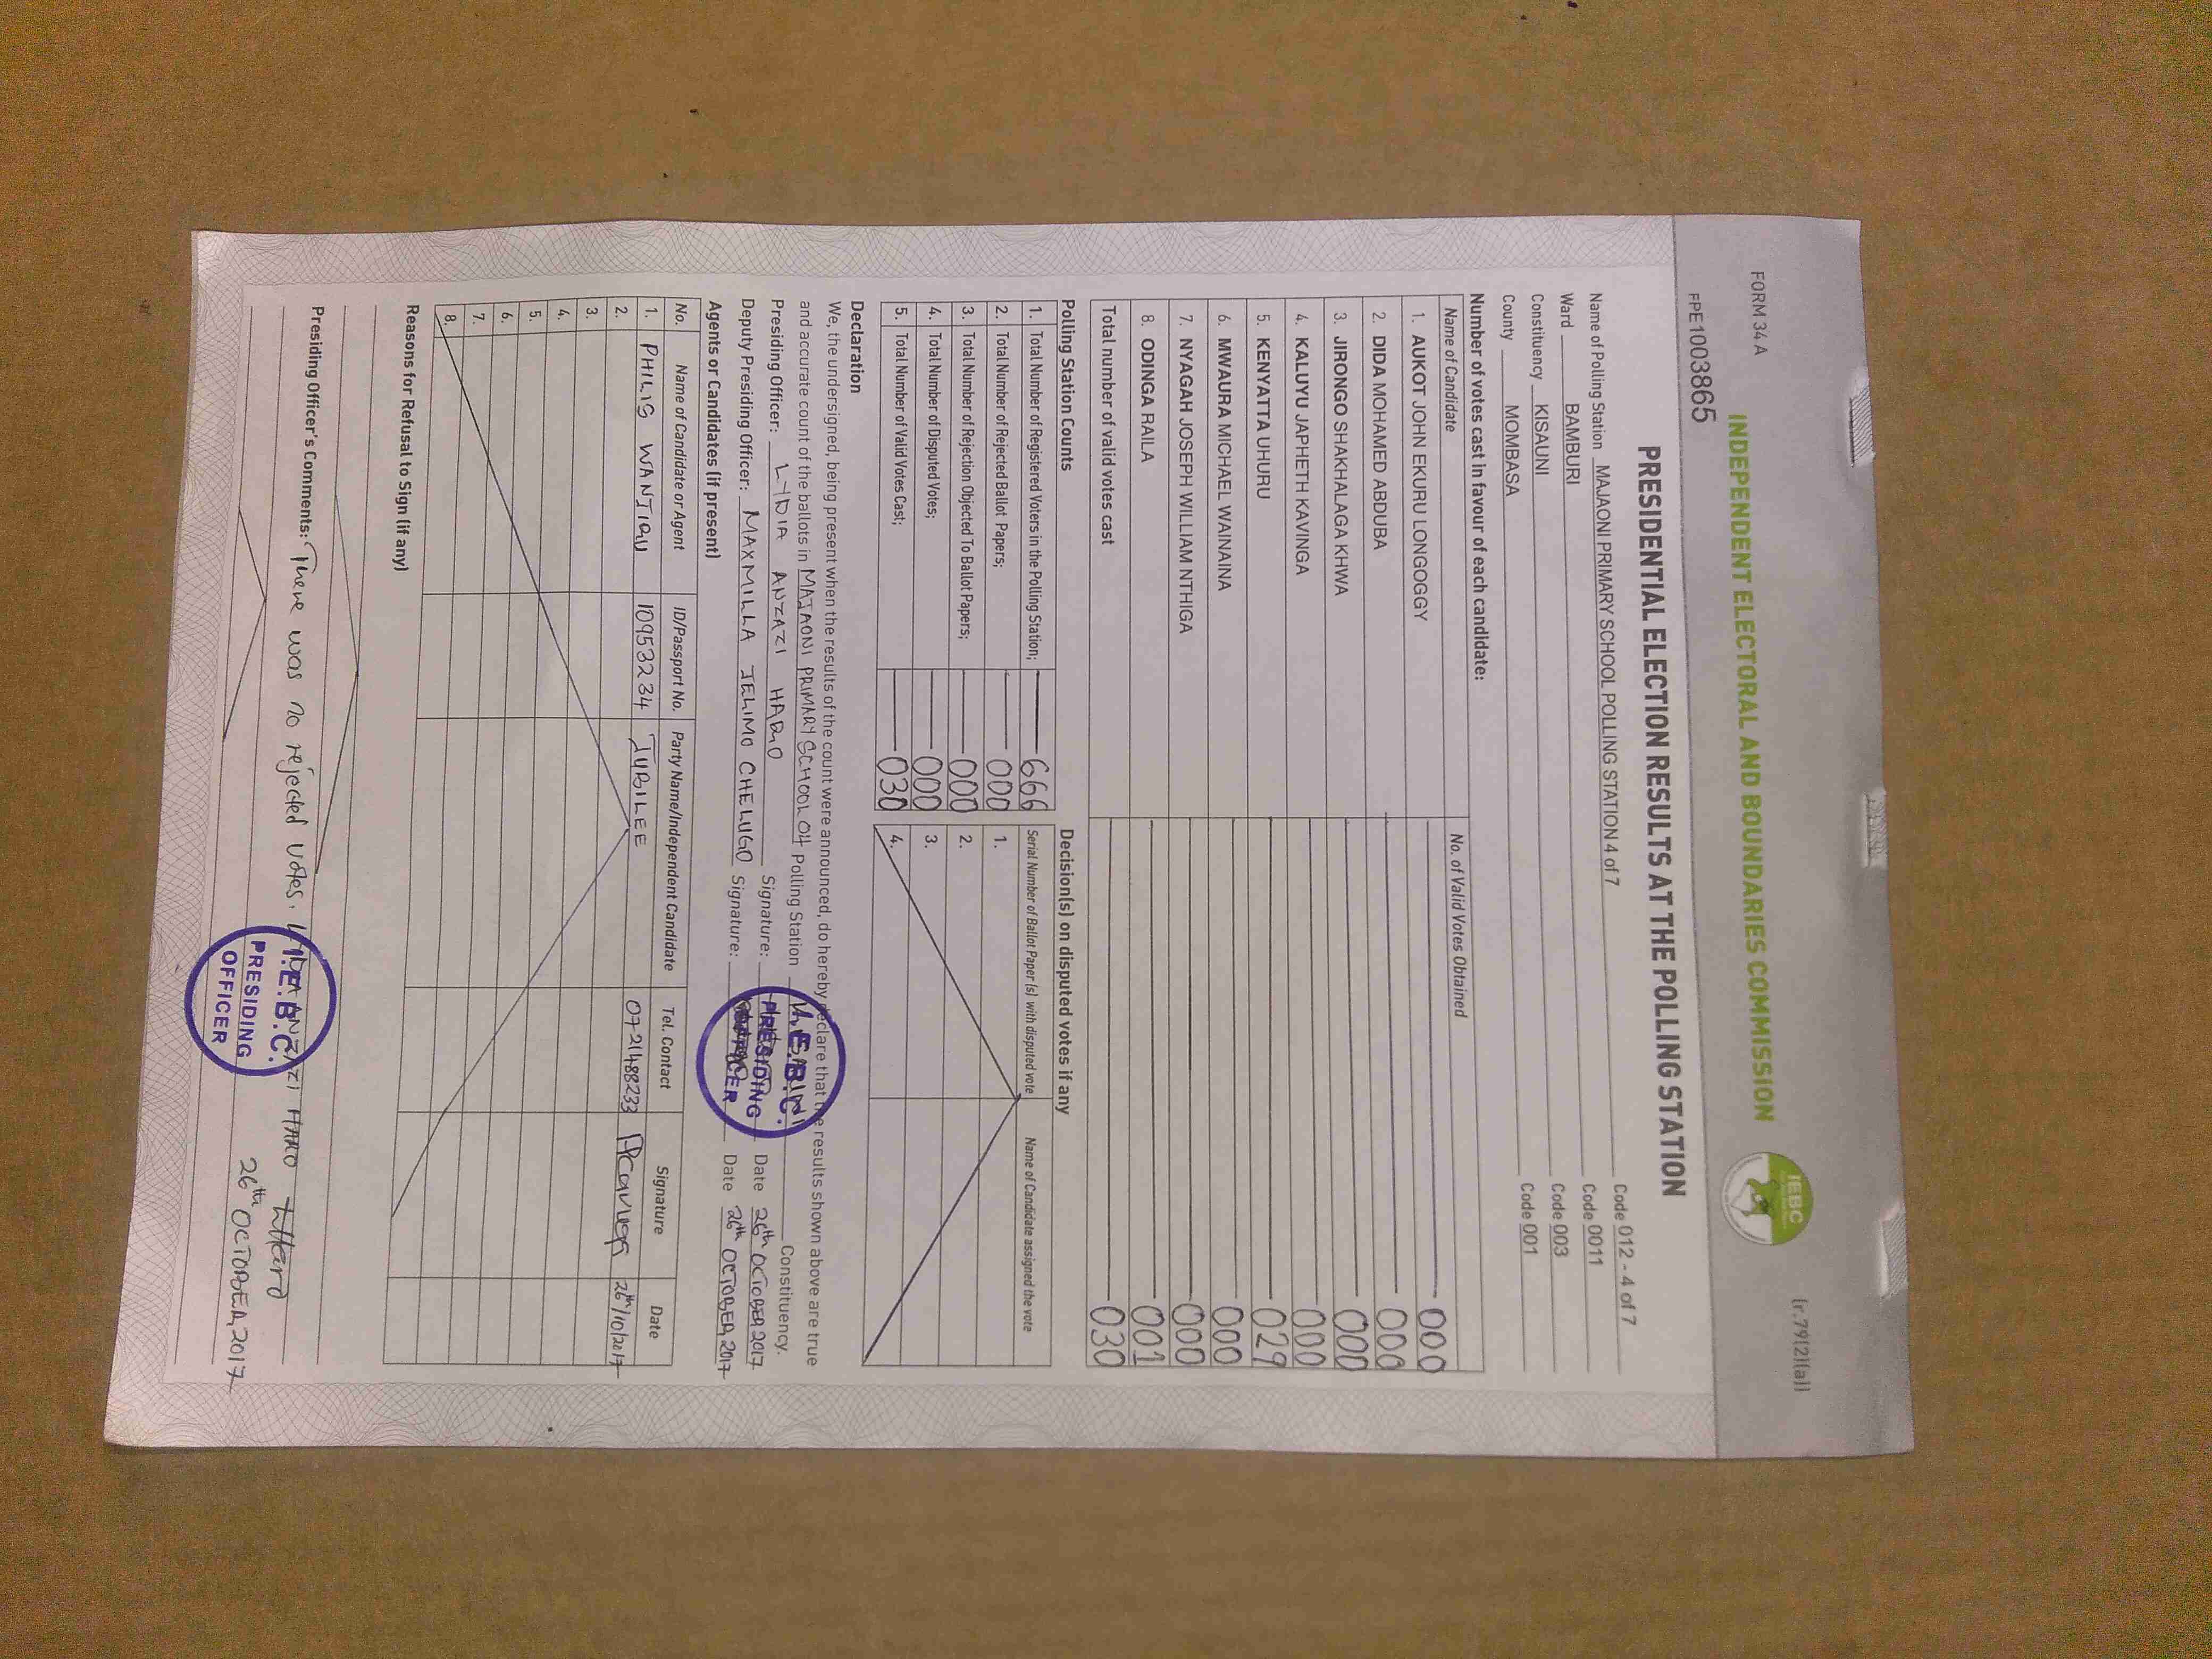 FORM 34 A
(r.79(2)(a))
INDEPENDENT ELECTORAL AND BOUNDARIES COMMISSION
IEBC
PPE1003865
PRESIDENTIAL ELECTION RESULTS AT THE POLLING STATION
Name of Polling Station MAJAONI PRIMARY SCHOOL POLLING STATION 4 of 7 Code 012 - 4 of 7
Ward BAMBURI Code 0011
Constituency KISAUNI Code 003
County MOMBASA Code 001
Number of votes cast in favour of each candidate:
Name of Candidate No. of Valid Votes Obtained
1. AUKOT JOHN EKURU LONGOGGY 000
2. DIDA MOHAMED ABDUBA 000
3. JIRONGO SHAKHALAGA KHWA 000
4. KALUYU JAPHETH KAVINGA 000
5. KENYATTA UHURU 029
6. MWAURA MICHAEL WAINAINA 000
7. NYAGAH JOSEPH WILLIAM NTHIGA 000
8. ODINGA RAILA 001
Total number of valid votes cast 030
Polling Station Counts
1. Total Number of Registered Voters in the Polling Station; 666
2. Total Number of Rejected Ballot Papers; 000
3. Total Number of Rejection Objected To Ballot Papers; 000
4. Total Number of Disputed Votes; 000
5. Total Number of Valid Votes Cast; 030
Decision(s) on disputed votes if any
Serial Number of Ballot Paper (s) with disputed vote Name of Candidate assigned the vote
1.
2.
3.
4.
Declaration
We, the undersigned, being present when the results of the count were announced, do hereby declare that the results shown above are true
and accurate count of the ballots in MAJAONI PRIMARY SCHOOL 04 Polling Station KISAUNI Constituency.
Presiding Officer: LYDIA ANZAZI HARO Signature: Date 26th OCTOBER, 2017
Deputy Presiding Officer: MAXMILLA JELIMO CHELUGO Signature: Date 26th OCTOBER, 2017
I.E.B.C.
PRESIDING
OFFICER
Agents or Candidates (if present)
No. Name of Candidate or Agent ID/Passport No. Party Name/Independent Candidate Tel. Contact Signature Date
1. PHILIS WANJIRU 10953234 JUBILEE 0721488233 26th/10/2017
2.
3.
4.
5.
6.
7.
8.
Reasons for Refusal to Sign (if any)
Presiding Officer's Comments: There was no rejected votes. LYDIA ANZAZI HARO
26th OCTOBER, 2017
I.E.B.C.
PRESIDING
OFFICER